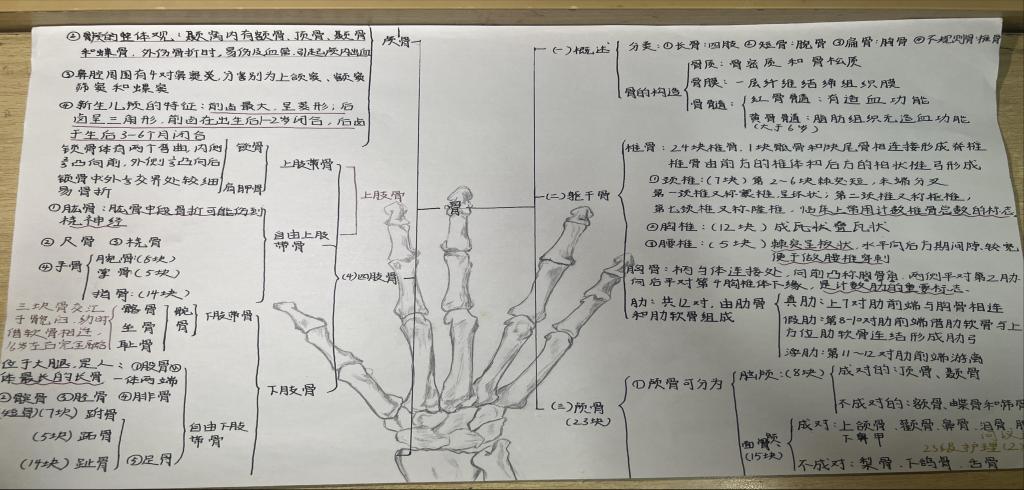 ②颅的整体观：颞窝内有额骨、顶骨、颞骨
和蝶骨，外伤骨折时，易伤及血管，引起颅内出血
③鼻腔周围有4对鼻窦，分别为上颌窦、额窦
筛窦和蝶窦
④新生儿颅的特征：前囟最大，呈菱形；后
囟呈三角形，前囟在出生后1-2岁闭合，后囟
于生后3-6个月闭合
颅骨
锁骨体有两个弯曲，内侧
凸向前，外侧凸向后
锁骨中外交界处较细
易骨折
锁骨
肩胛骨
上肢带骨
上肢骨
①肱骨：肱骨中段骨折可能伤到
桡神经
②尺骨 ③桡骨
④手骨
腕骨(8块)
掌骨(5块)
指骨：(14块)
自由上肢
带骨
(4)四肢骨
三块骨交汇
于髋臼，幼时
借软骨相连，
16岁左右完全融合
髂骨
坐骨
耻骨
髋骨
下肢带骨
下肢骨
位于大腿，是人
体最长的长骨
①股骨
一体两端
②髌骨 ③胫骨 ④腓骨
短骨(7块)跗骨
(5块)跖骨
(14块)趾骨
⑤足骨
自由下肢
带骨
骨
(一)概述
分类：①长骨：四肢 ②短骨：腕骨 ③扁骨：胸骨 ④不规则骨：椎骨
骨的构造
骨质：骨密质和骨松质
骨膜：一层纤维结缔组织膜
骨髓：
红骨髓：有造血功能
黄骨髓：脂肪组织无造血功能
(大于6岁)
(二)躯干骨
椎骨：24块椎骨、1块骶骨和块尾骨相连接形成脊柱
椎骨由前方的椎体和后方的柏状椎弓形成
①颈椎：(7块)第2~6块棘突短，末端分叉
第一颈椎又称寰椎，呈环状；第二颈椎又称枢椎，
第七颈椎又称隆椎，临床上常用计数椎骨总数的标志
②胸椎：(12块)成瓦状叠瓦状
③腰椎：(5块)棘突呈板状，水平向后方期间隙较宽
便于做腰椎穿刺
胸骨：柄与体连接处，向前凸称胸骨角，两侧平对第2肋
向后平对第4胸椎体下缘，是计数肋的重要标志
肋：共12对，由肋骨
和肋软骨组成
真肋：上7对肋前端与胸骨相连
假肋：第8-10对肋前端借肋软骨与上
方位肋软骨连结形成肋弓
浮肋：第11~12对肋前端游离
(三)颅骨
(23块)
①颅骨可分为
脑颅：(8块)
成对的：顶骨、颞骨
不成对的：额骨、蝶骨和筛骨
面颅：
(15块)
成对：上颌骨、颧骨、鼻骨、泪骨、腭
下鼻甲
不成对：梨骨、下鸽骨、舌骨
23级护理(2)